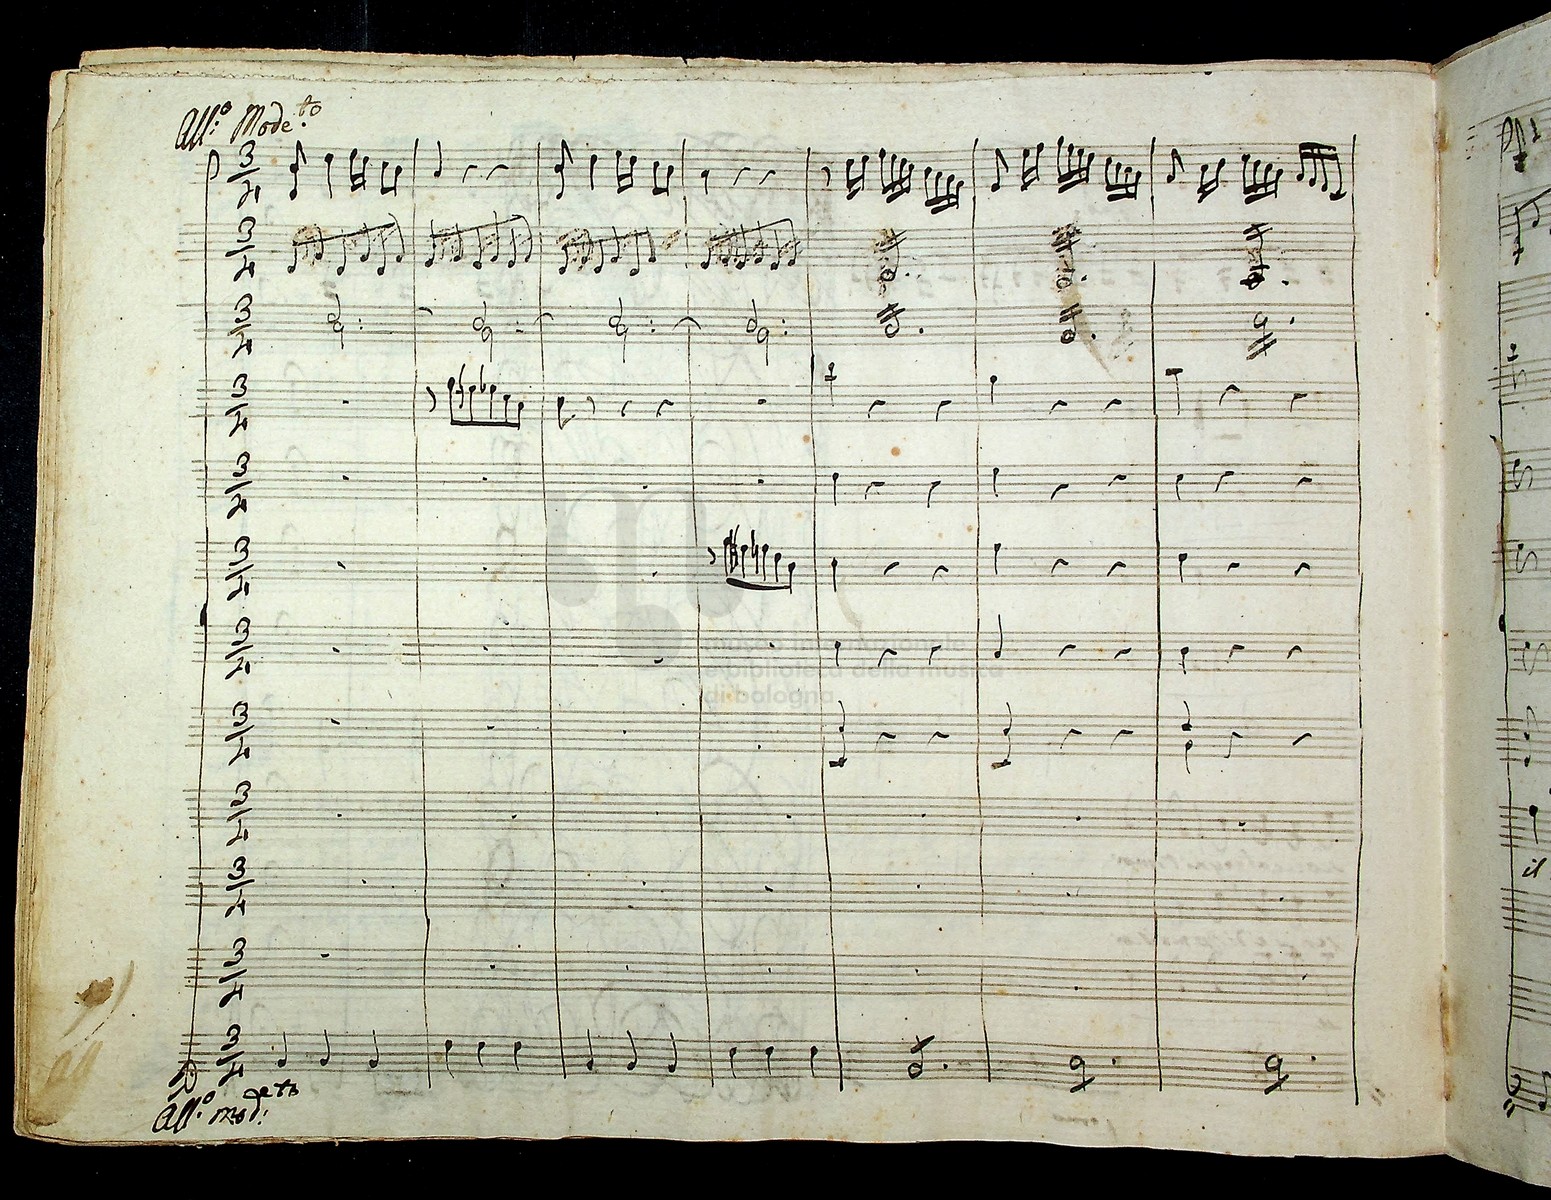 All.º Mode.to
3/4
3/4
3/4
3/4
3/4
3/4
3/4
3/4
3/4
3/4
3/4
3/4
All.º mod.eto
museo internazionale
e biblioteca della musica
di bologna
il